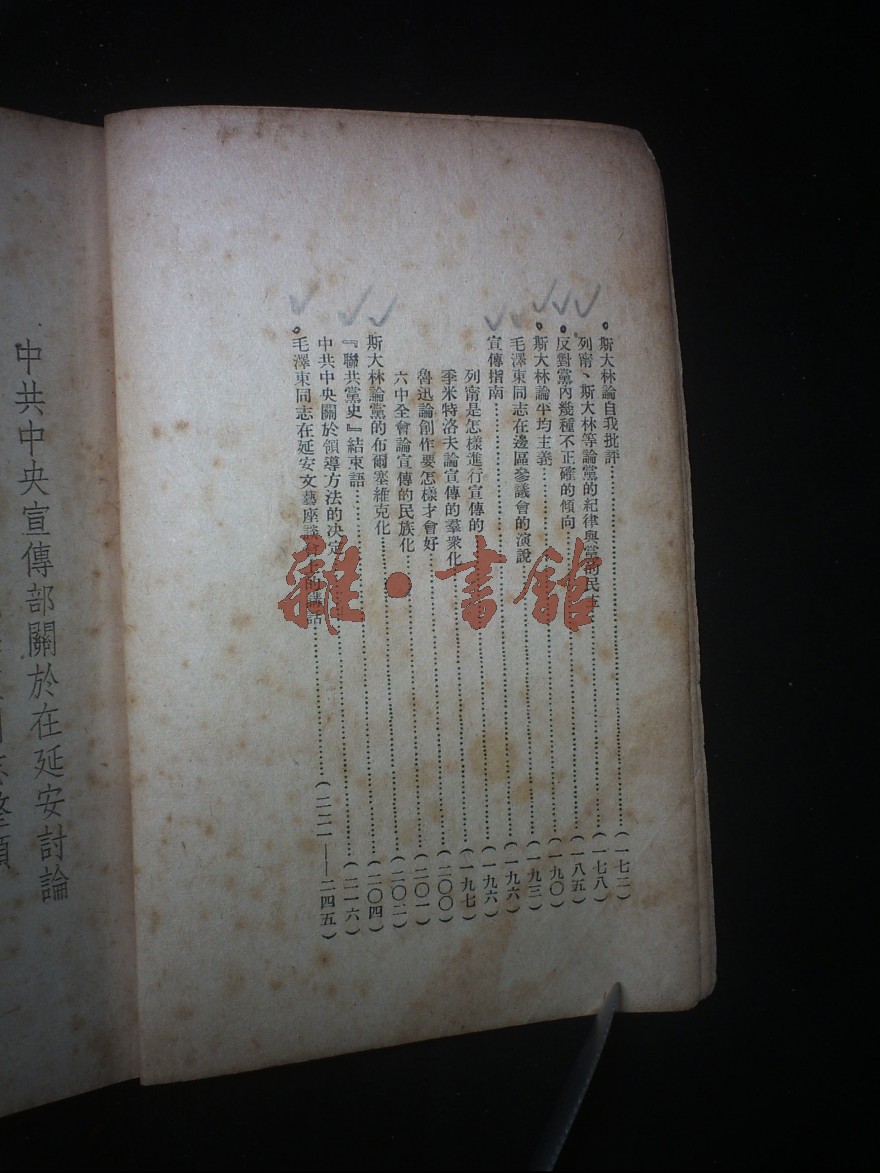 斯大林論自我批評……(一七二)
列甯、斯大林等論黨的紀律與黨的民主……(一七八)
反對黨內幾種不正確的傾向……(一八五)
斯大林論平均主義……(一九〇)
毛澤東同志在邊區參議會的演說……(一九三)
宣傳指南……(一九六)
列甯是怎樣進行宣傳的……(一九六)
季米特洛夫論宣傳的羣衆化……(一九七)
魯迅論創作要怎樣才會好……(二〇〇)
六中全會論宣傳的民族化……(二〇一)
斯大林論黨的布爾塞維克化……(二〇二)
『聯共黨史』結束語……(二〇四)
中共中央關於領導方法的决定……(二一六)
毛澤東同志在延安文藝座談會上的講話……(二二一——二四五)
中共中央宣傳部關於在延安討論
雜·書館